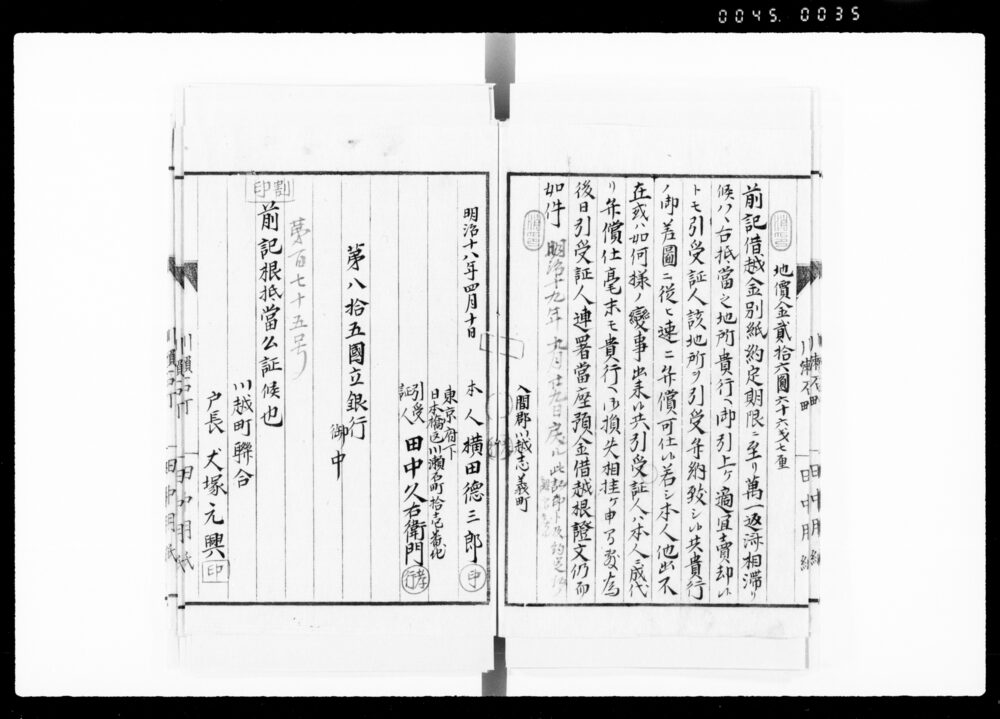 0045. 0035
地價金貳拾六圓六十六戋七厘
前記借越金別紙約定期限ニ至リ萬一返済相滞リ
候ハヽ右抵當之地所貴行ヘ御引上ケ適宜賣却候
トモ引受証人該地所ヲ引受弁納致シ候共貴行
ノ御差圖ニ従ヒ速ニ弁償可仕候若シ本人他出不
在或ハ如何様ノ變事出来候共引受証人ハ本人ニ成代
リ弁償仕毫末モ貴行ヘ御損失相掛ケ申間敷為
後日引受証人連署當座預金借越根證文仍而
如件
明治十九年 九月廿九日戻ル
入間郡川越志義町
明治十八年四月十日
本人 横田德三郎 印
東京府下
日本橋区川瀬石町拾壱番地
引受証人 田中久右衛門
第八拾五國立銀行
御中
第百七十五号
割印
前記根抵當公証候也
川越町聯合
戸長 犬塚元興 印